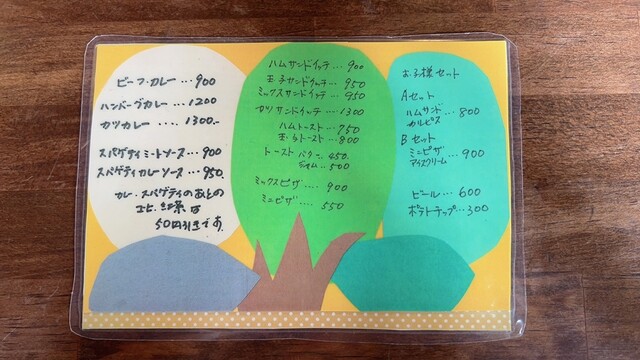 ビーフ・カレー…900
ハンバーグカレー…1200
カツカレー….1300.-
スパゲティミートソース…900
スパゲティカレーソース…950
カレー、スパゲティのあとの
コーヒ、紅茶は
50円引きです
ハムサンドイッチ…900
玉子サンドイッチ…950
ミックスサンドイッチ…950
カツサンドイッチ….1300
ハムトースト….750
玉子トースト….800
トースト バター…450.
ジャム…500
ミックスピザ….900
ミニピザ….550
お子様セット
Aセット
ハムサンド
カルピス…800
Bセット
ミニピザ
アイスクリーム…900
ビール…600
ポテトチップ…300